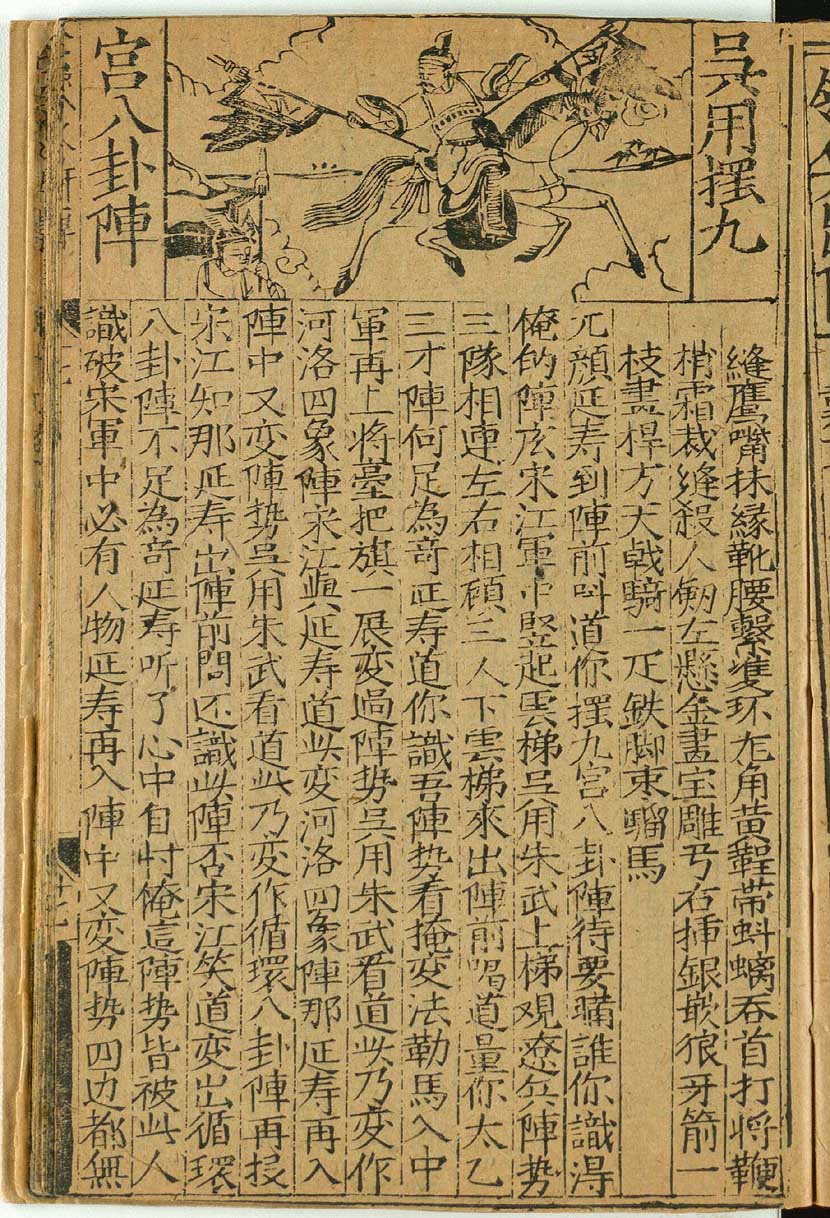 吳用擺九
宮八卦陣
縫鷹嘴抹緑靴腰繫雙环尨角黄鞓帶蚪螭吞首打将鞭
梢霜裁縫殺人劍左懸金畫宝雕弓右挿銀嵌狼牙箭一
枝畫桿方天戟騎一疋鉄脚枣騮馬
兀顔延寿到陣前呌道你擺九宮八卦陣待要瞞誰你識淂
俺的陣庅宋江軍中竪起雲梯吴用朱武上梯观遼兵陣势
三隊相連左右相顧三人下雲梯來出陣前喝道量你太乙
三才陣何足為竒延寿道你識吾陣势看掩变法勒馬入中
軍再上将臺把旗一展变過陣势吴用朱武看道此乃变作
河洛四象陣宋江與延寿道此变河洛四象陣那延寿再入
陣中又变陣势吴用朱武看道此乃变作循環八卦陣再报
宋江知那延寿出陣前問还識此陣否宋江笑道变出循環
八卦陣不足為竒延寿听了心中自忖俺這陣势皆被此人
識破宋軍中必有人物延寿再入陣中又变陣势四边都無